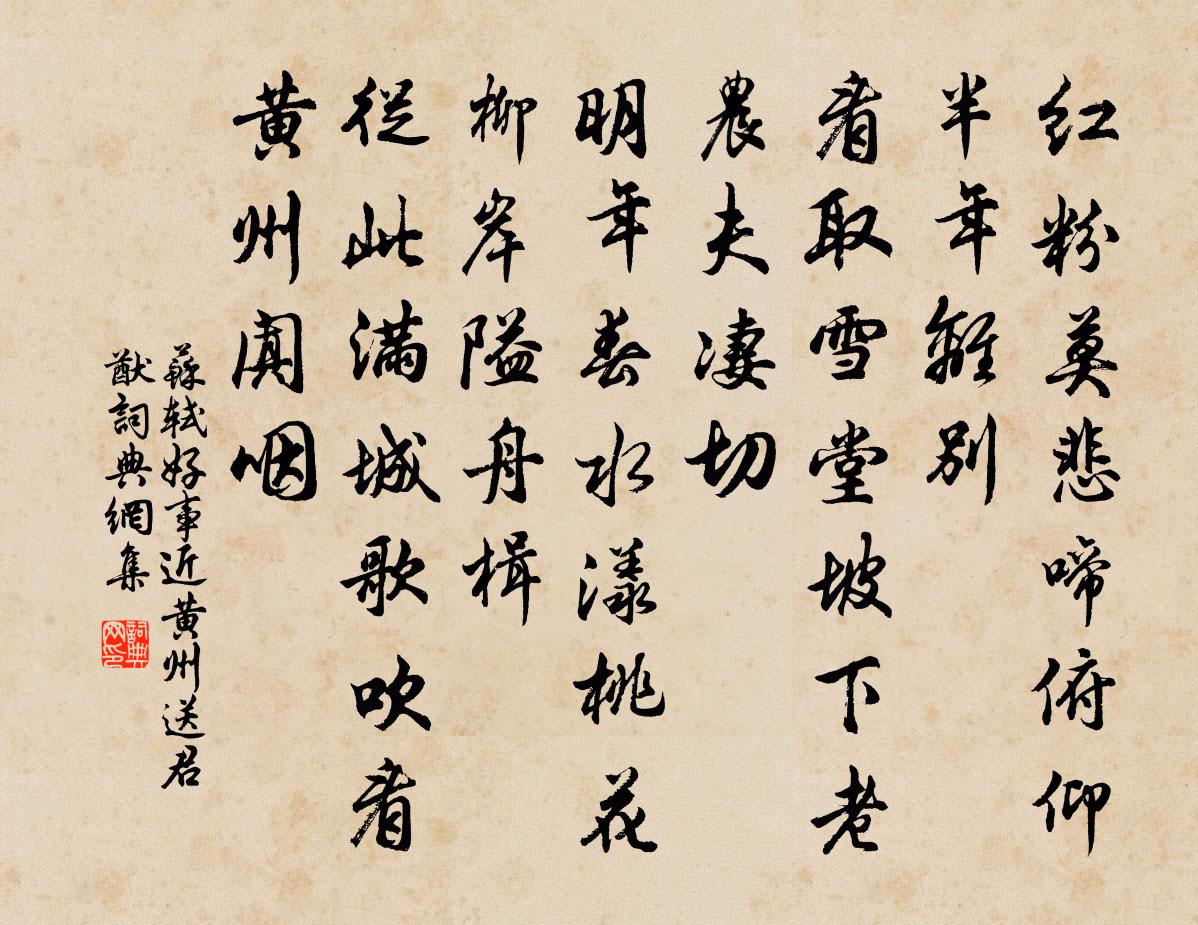 紅粉莫悲啼俯仰
半年離別
看取雪堂坡下老
農夫凄切
明年春水漾桃花
柳岸隘舟楫
從此滿城歌吹看
黄州闐咽
蘇軾好事近黄州送君
猷詞典網集
詞典
网印